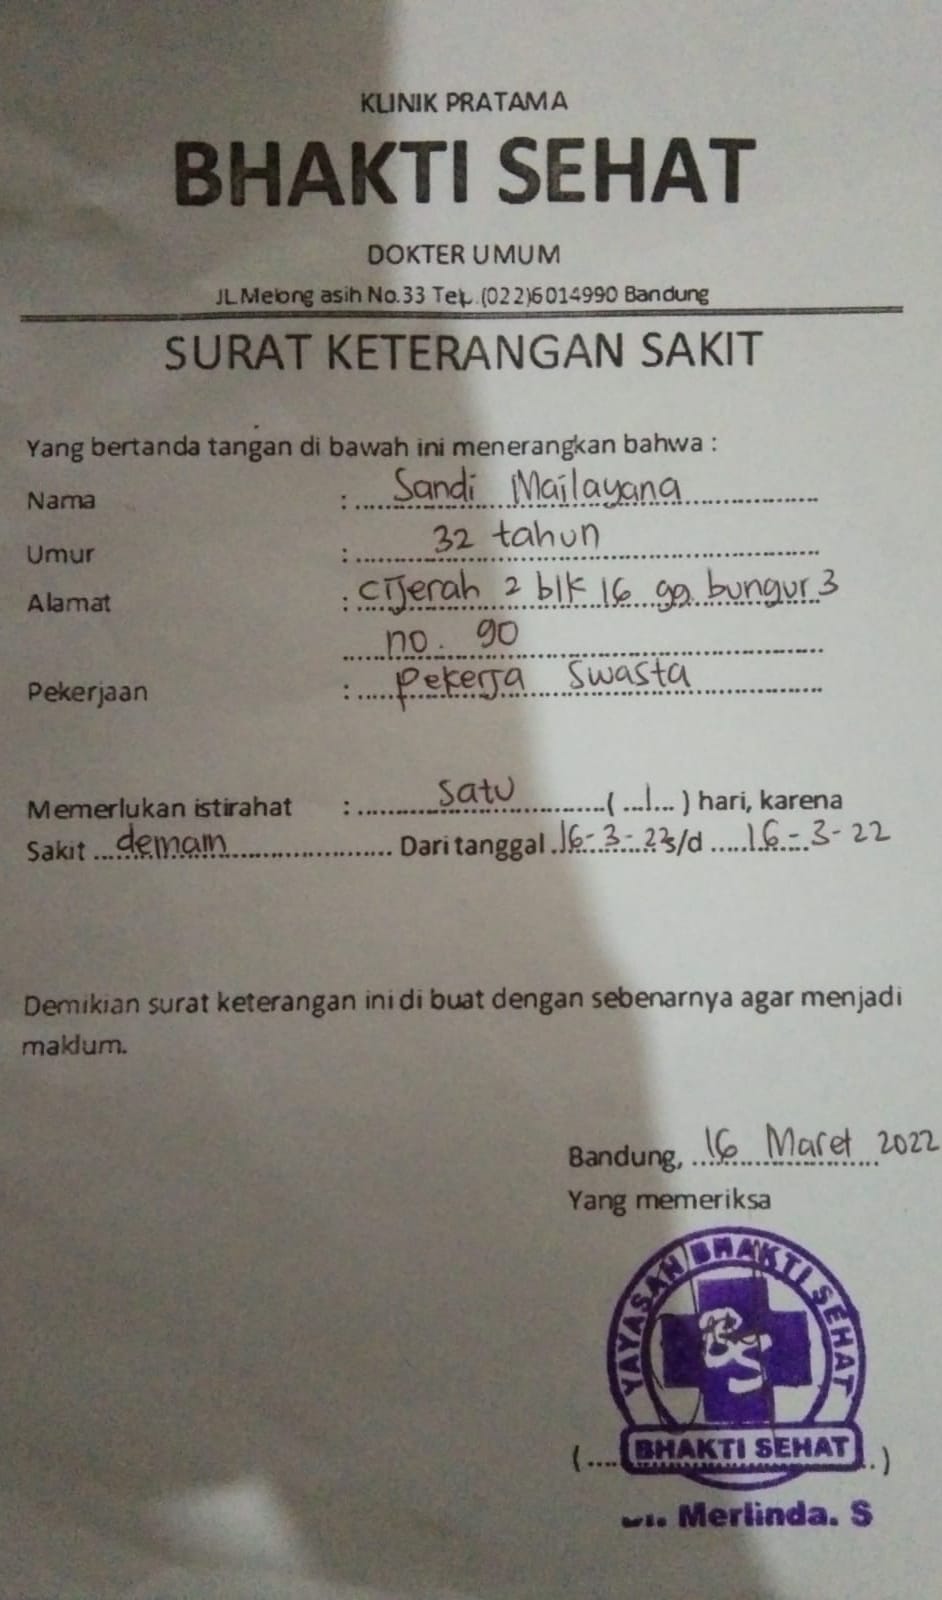 KLINIK PRATAMA
BHAKTI SEHAT
DOKTER UMUM
JL.Melong asih No.33 Tel.(022)6014990 Bandung
SURAT KETERANGAN SAKIT
Yang bertanda tangan di bawah ini menerangkan bahwa :
Nama : Sandi Mailayana
Umur : 32 tahun
Alamat : Cijerah 2 blk 16 gg. bungur 3
no. 90
Pekerjaan : Pekerja Swasta
Memerlukan istirahat : Satu ( 1 ) hari, karena
Sakit demam Dari tanggal 16-3-22 s/d 16-3-22
Demikian surat keterangan ini di buat dengan sebenarnya agar menjadi
maklum.
Bandung, 16 Maret 2022
Yang memeriksa
YAYASAN BHAKTI SEHAT
BS
(.... BHAKTI SEHAT ..)
Dr. Merlinda. S